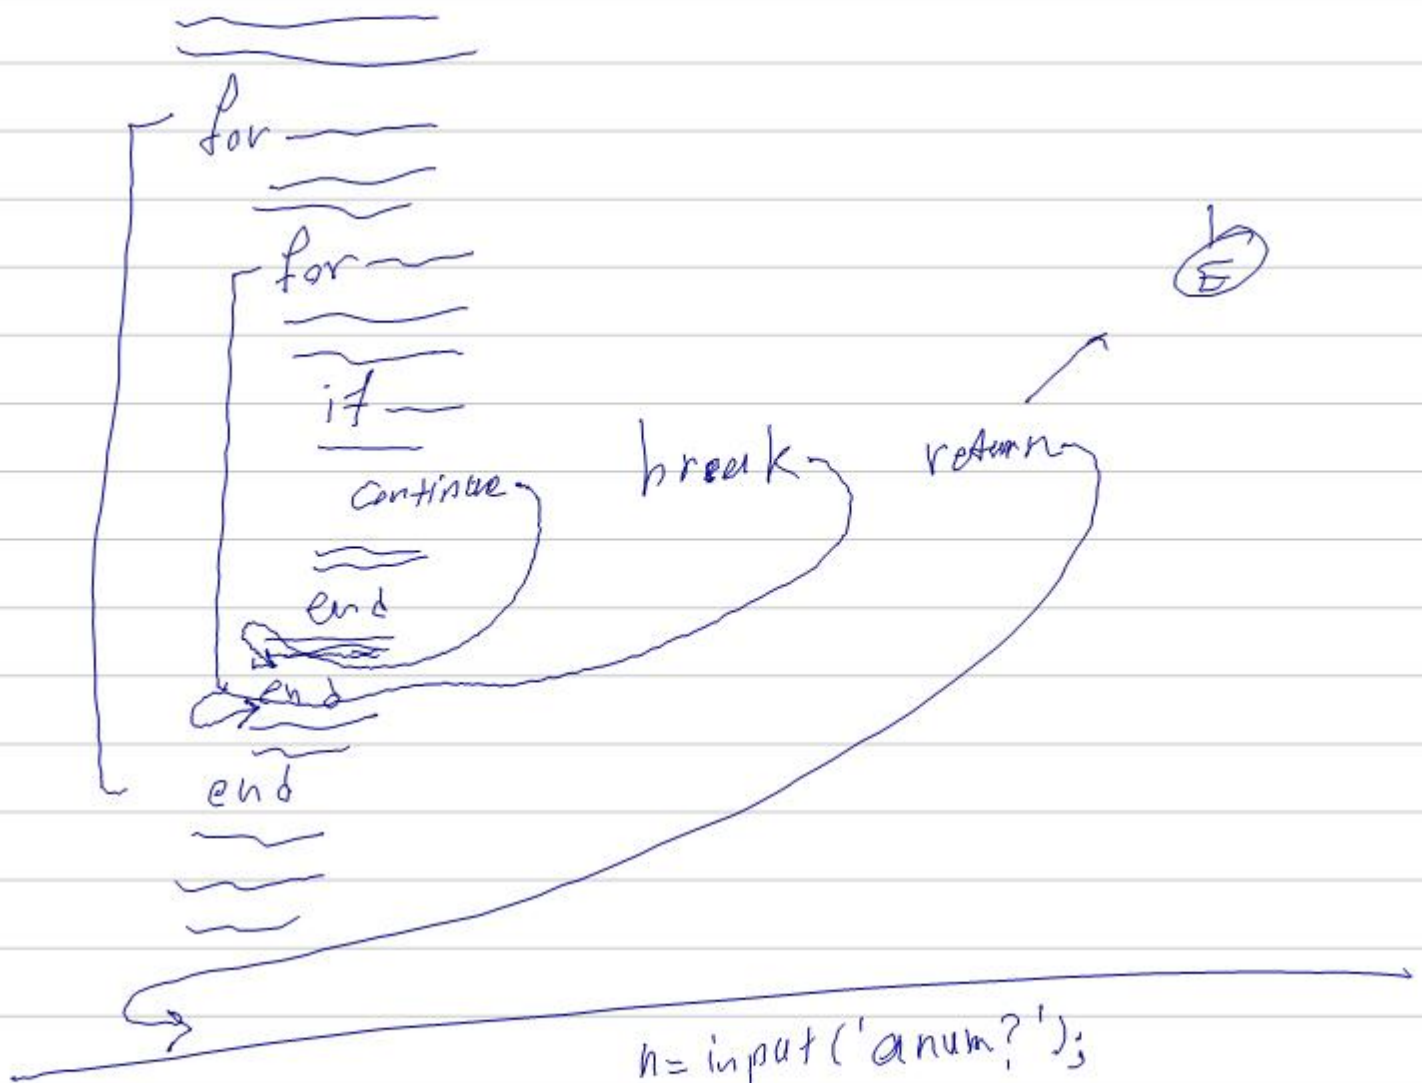 for
for
if
continue break return
end
end
end
n= input('anum?');